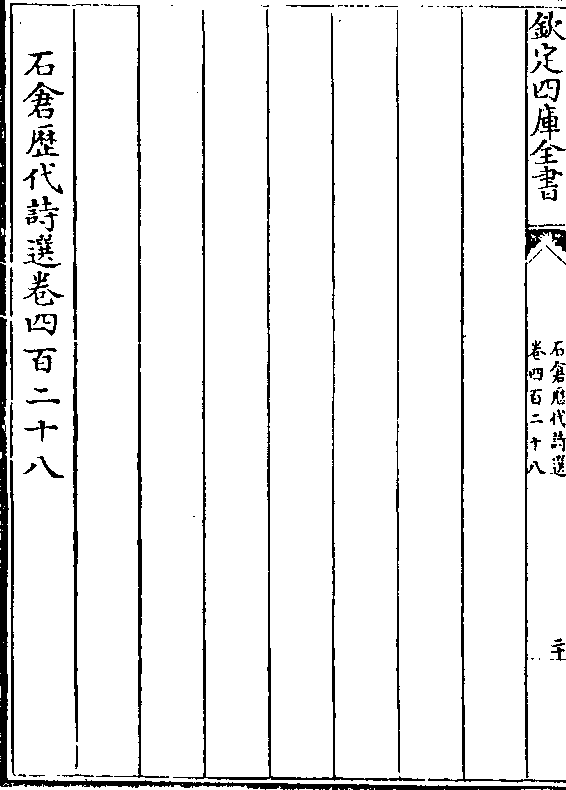 欽定四庫全書
石倉歷代詩選
卷四百二十八
石倉歷代詩選卷四百二十八